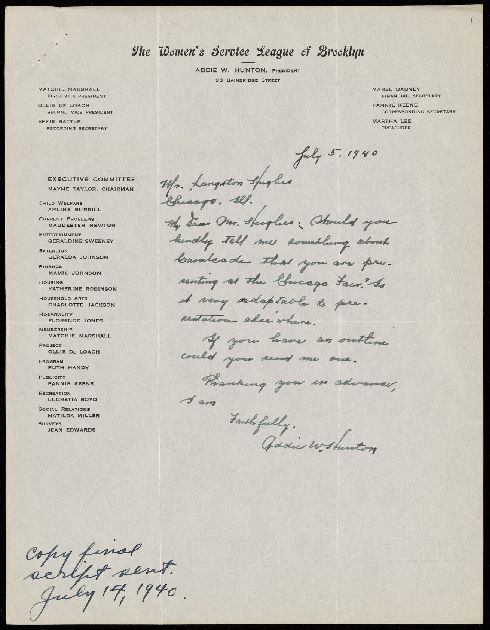 The Women's Service League of Brooklyn
ADDIE W. HUNTON, PRESIDENT
BAINBRIDGE STREET
MARSHALL
FIRST VICE PRESIDENT
OLLIE DE LOACH
SECOND VICE PRESIDENT
BATTLE
RECORDING SECRETARY
MABEL DABNEY
FINANCIAL SECRETARY
FANNIE KEENE
CORRESPONDING SECRETARY
MARTHA LEE
TREASURER
July 5, 1940
EXECUTIVE COMMITTEE
MAYME TAYLOR, CHAIRMAN
CHILD WELFARE
BURRILL
CURRENT PROBLEMS
NEWTON
ENTERTAINMENT
GERALDINE SWEENEY
EXTENSION
GERALDA JOHNSON
FINANCE
MAMIE JOHNSON
HOUSING
KATHERINE ROBINSON
HOUSEHOLD ARTS
CHARLOTTE JACKSON
HOSPITALITY
FLORENCE JONES
MEMBERSHIP
MARSHALL
PROJECT
OLLIE DE LOACH
PROGRAM
RUTH HANDY
PUBLICITY
FANNIE KEENE
RECREATION
LUCRETIA BOYD
SOCIAL RELATIONS
MATILDA MILLER
SURVEYS
JEAN EDWARDS
Mr. Langston Hughes
Chicago, Ill.
My Dear Mr. Hughes: Would you
kindly tell me something about
Cavalcade that you are pre-
senting at the Chicago Fair." Is
it very adaptable to pre-
sentation elsewhere.
If you have an outline
could you send me one.
Thanking you in advance,
I am
Faithfully,
Addie W. Hunton
copy final
script sent.
July 14, 1940.